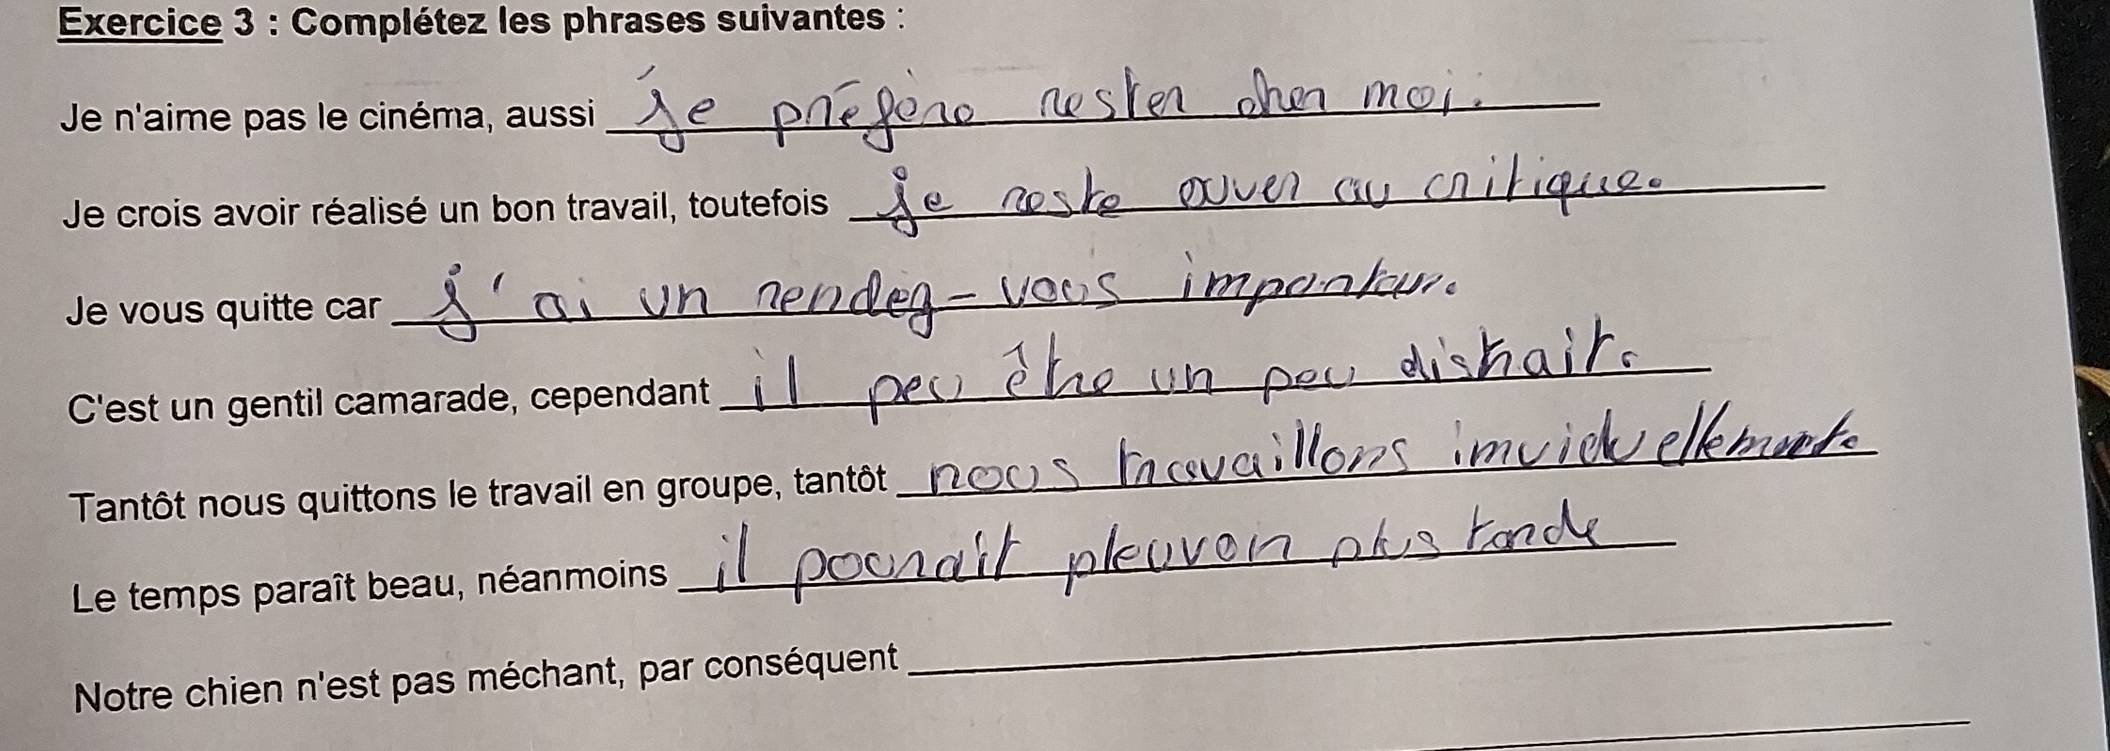 Exercice 3 : Complétez les phrases suivantes :
Je n'aime pas le cinéma, aussi je préfère rester cher moi.
Je crois avoir réalisé un bon travail, toutefois je reste ouver au critique.
Je vous quitte car j'ai un rendeg-vous important.
C'est un gentil camarade, cependant il peu être un peu distrait.
Tantôt nous quittons le travail en groupe, tantôt nous travaillons
Le temps paraît beau, néanmoins il pourait pleuvoir plus tarde
Notre chien n'est pas méchant, par conséquent